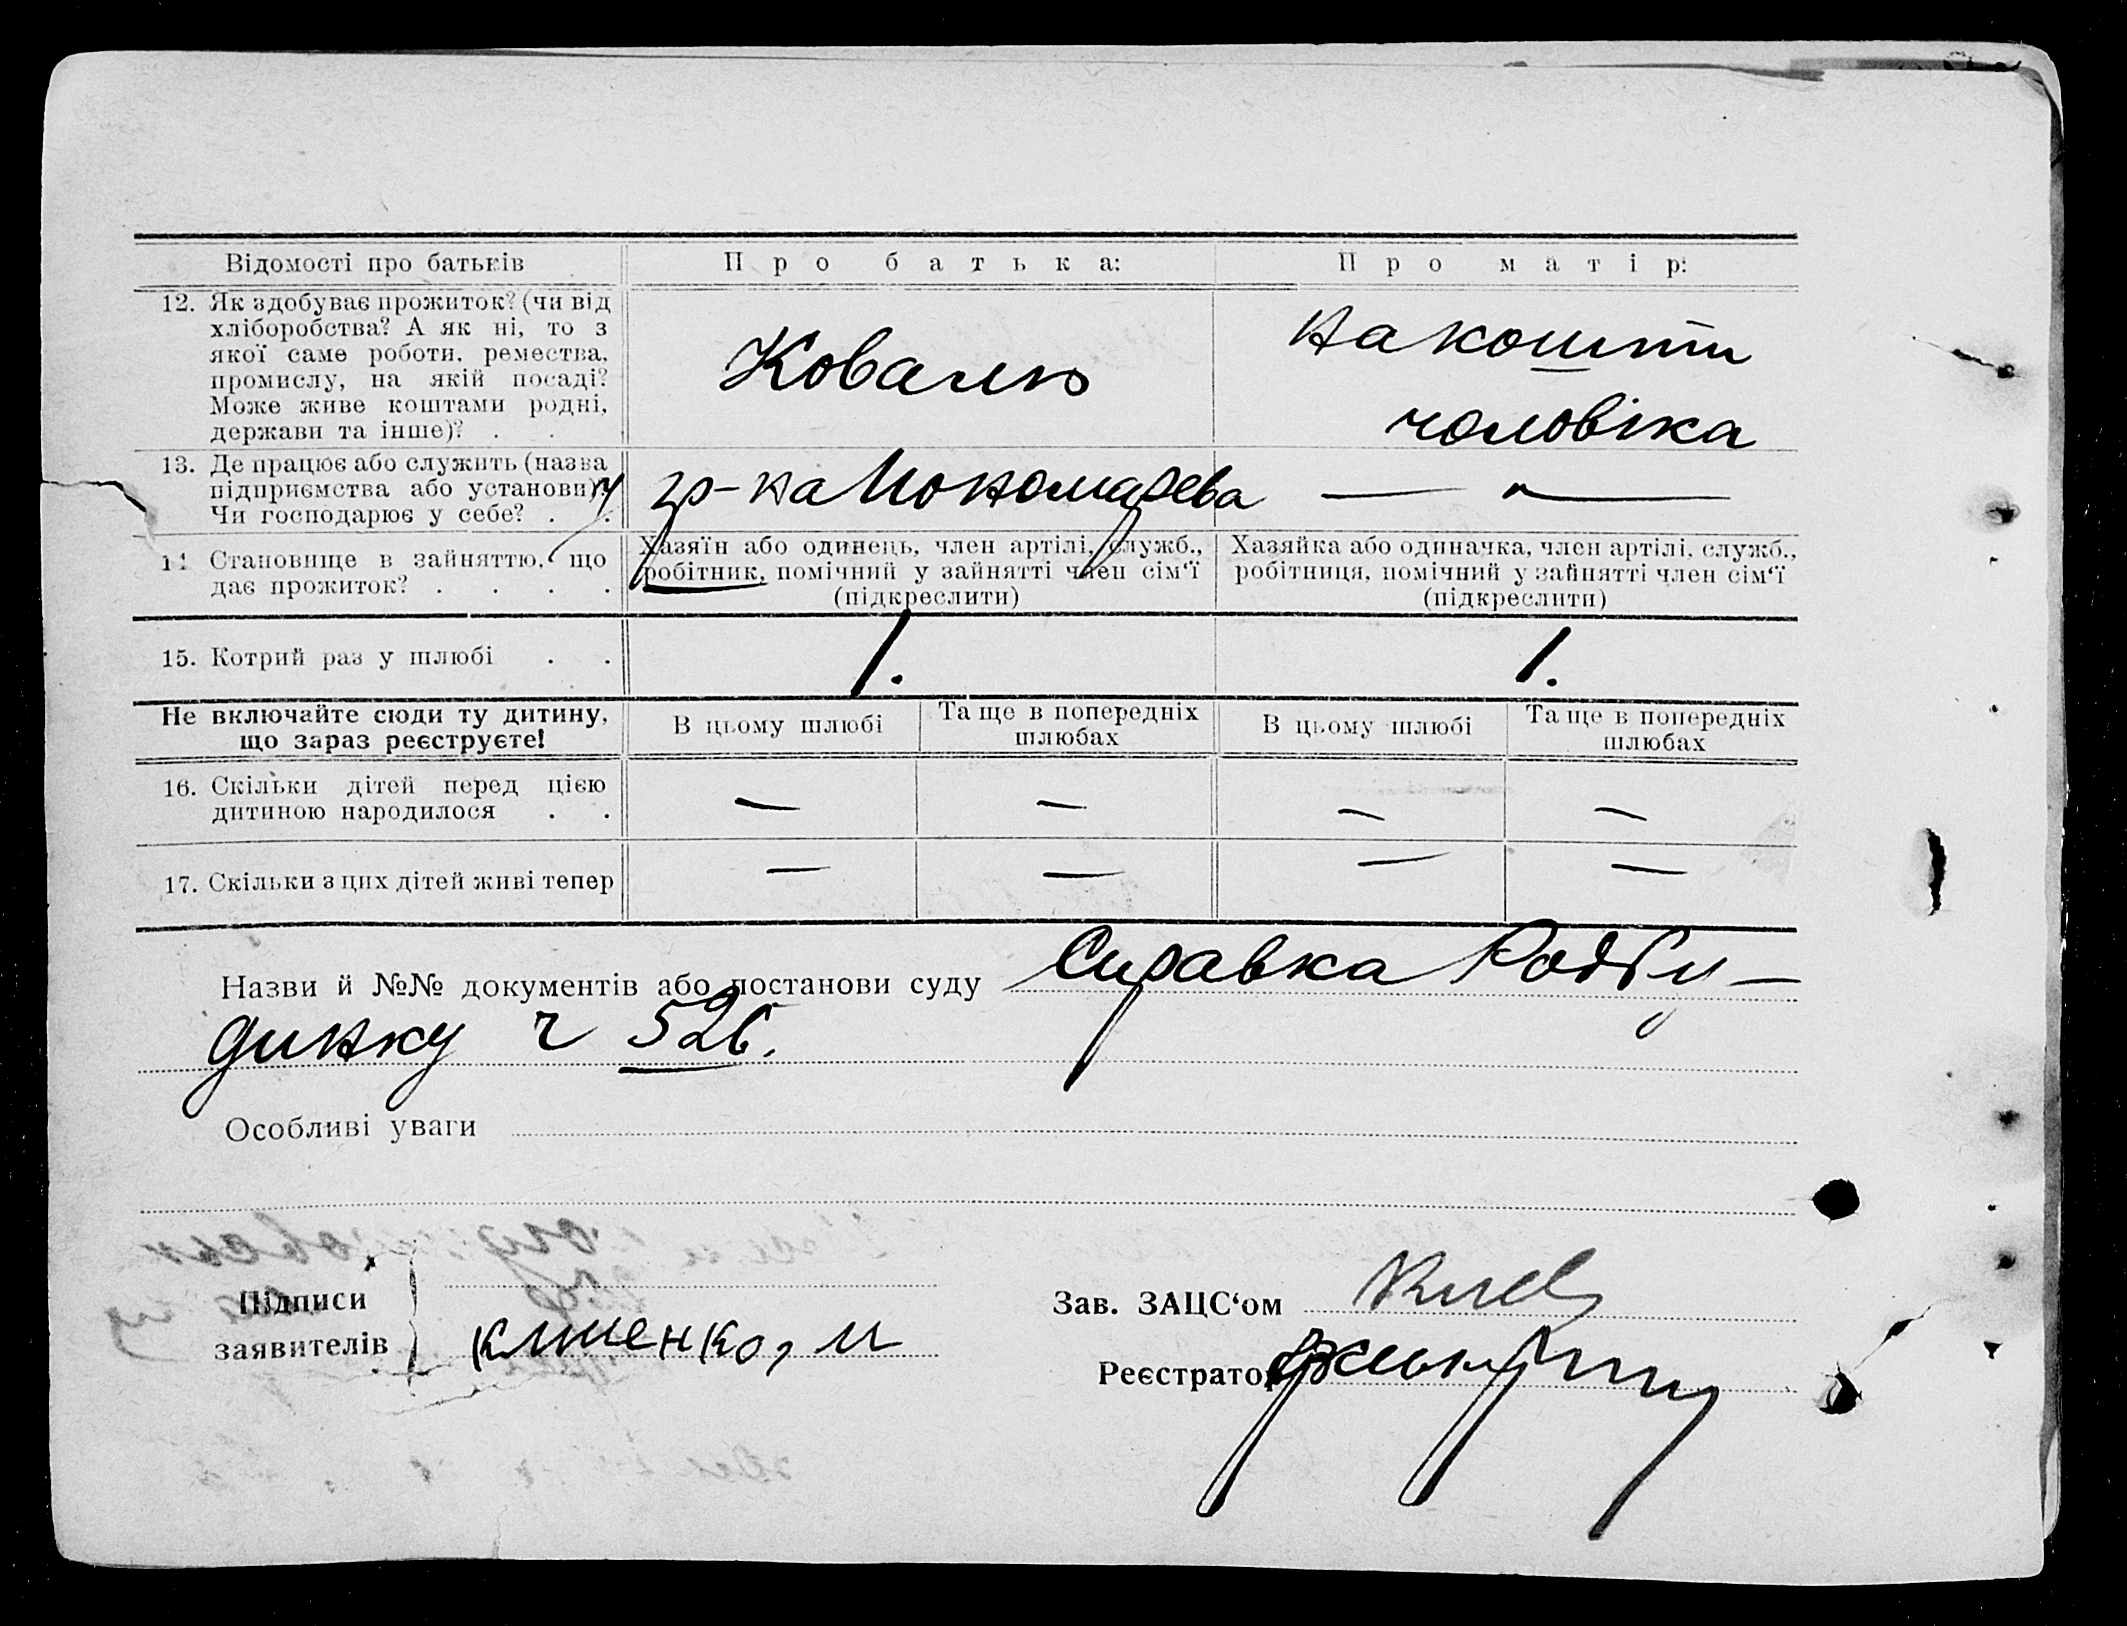 Відомості про батьків
Про батька:
Про матір:
12. Як здобуває прожиток? (чи від
хліборобства? А як ні, то з
якої саме роботи, ремества,
промислу, на якій посаді?
Може живе коштами родні,
держави та інше)? . .
Коваль
на кошти
чоловіка
13. Де працює або служить (назва
підприємства або установи)?
Чи господарює у себе? . .
у гр-на
— —
14 Становище в зайняттю, що
дає прожиток? . . . .
Хазяїн або одинець, член артілі, служб.,
робітник, помічний у зайнятті член сім‘ї
(підкреслити)
Хазяйка або одиначка, член артілі, служб.,
робітниця, помічний у зайнятті член сім‘ї
(підкреслити)
15. Котрий раз у шлюбі . .
1.
1.
Не включайте сюди ту дитину,
що зараз реєструєте!
В цьому шлюбі
Та ще в попередніх
шлюбах
В цьому шлюбі
Та ще в попередніх
шлюбах
16. Скільки дітей перед цією
дитиною народилося . .
— — — —
17. Скільки з цих дітей живі тепер
— — — —
Назви й №№ документів або постанови суду Справка Родбу-
динку ч 526.
Особливі уваги
Підписи
заявителів
клименко, м
Зав. ЗАЦС‘ом
Реєстратор